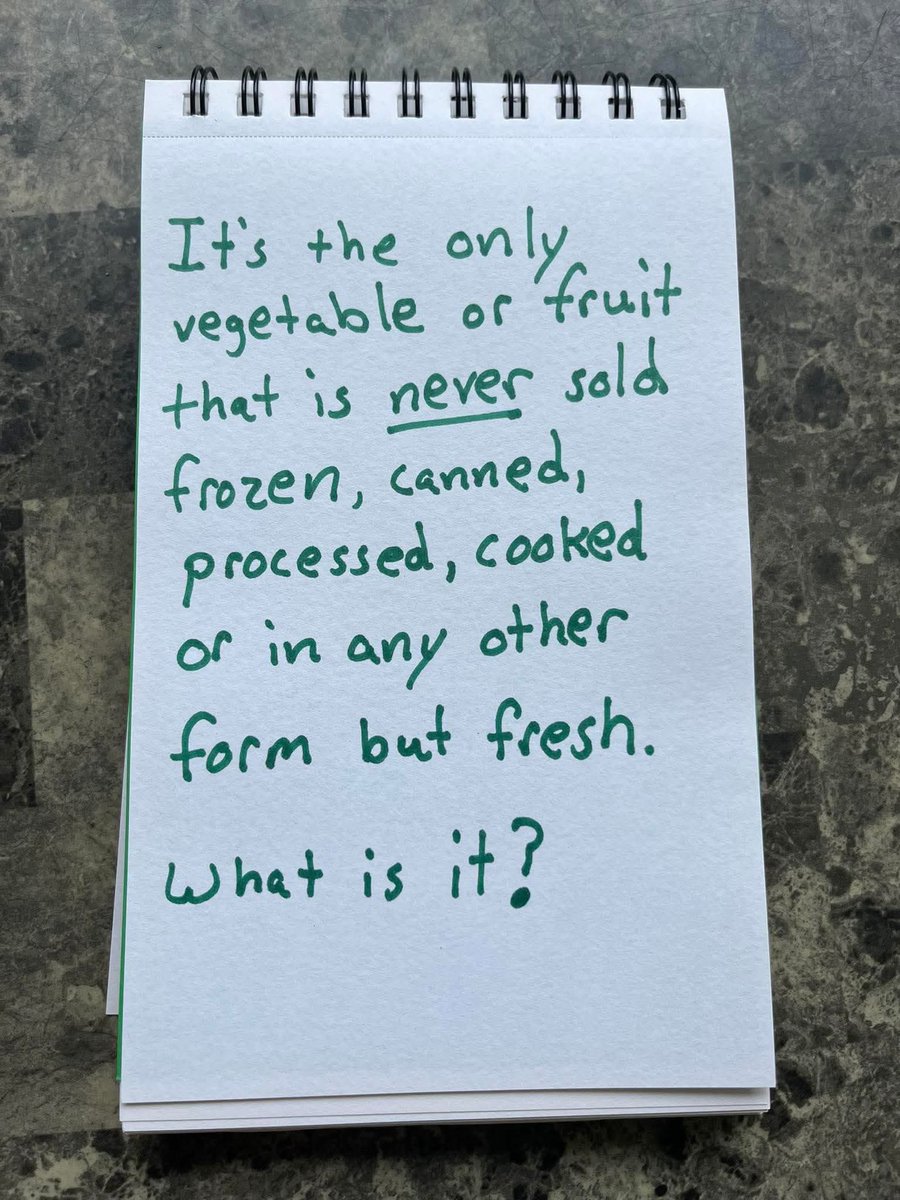 It's the only
vegetable or fruit
that is never sold
frozen, canned,
processed, cooked
or in any other
form but fresh.
What is it?